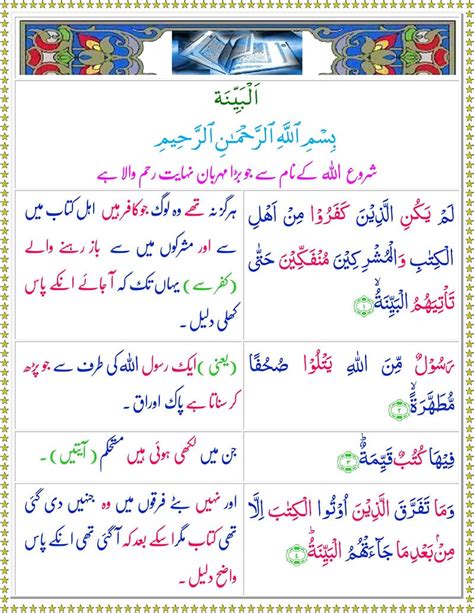 اَلْبَيِّنَة
بِسْمِ ٱللَّهِ ٱلرَّحْمَٰنِ ٱلرَّحِيمِ
شروع اللہ کے نام سے جو بڑا مہربان نہایت رحم والا ہے
لَمْ يَكُنِ الَّذِيْنَ كَفَرُوْا مِنْ اَهْلِ
الْكِتٰبِ وَالْمُشْرِكِيْنَ مُنْفَكِّيْنَ حَتّٰى
تَاْتِيَهُمُ الْبَيِّنَةُ ۙ ١
ہرگز نہ تھے وہ لوگ جو کافر ہیں اہل کتاب میں
سے اور مشرکوں میں سے باز رہنے والے
(کفر سے) یہاں تک کہ آ جائے انکے پاس
کھلی دلیل ۔
رَسُوْلٌ مِّنَ اللّٰهِ يَتْلُوْا صُحُفًا
مُّطَهَّرَةً ۙ ٢
(یعنی) ایک رسول اللہ کی طرف سے جو پڑھ
کر سناتا ہے پاک اوراق ۔
فِيْهَا كُتُبٌ قَيِّمَةٌ ؕ ٣
جن میں لکھی ہوئی ہیں مستحکم (آیتیں) ۔
وَمَا تَفَرَّقَ الَّذِيْنَ اُوْتُوا الْكِتٰبَ اِلَّا
مِنْۢ بَعْدِ مَا جَآءَتْهُمُ الْبَيِّنَةُ ؕ ٤
اور نہیں بٹے فرقوں میں وہ جنہیں دی گئی
تھی کتاب مگر اسکے بعد کہ آ گئی تھی انکے پاس
واضح دلیل ۔